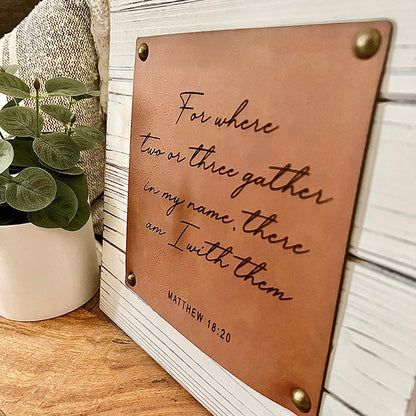 For where
two or three gather
in my name, there
am I with them
MATTHEW 18:20